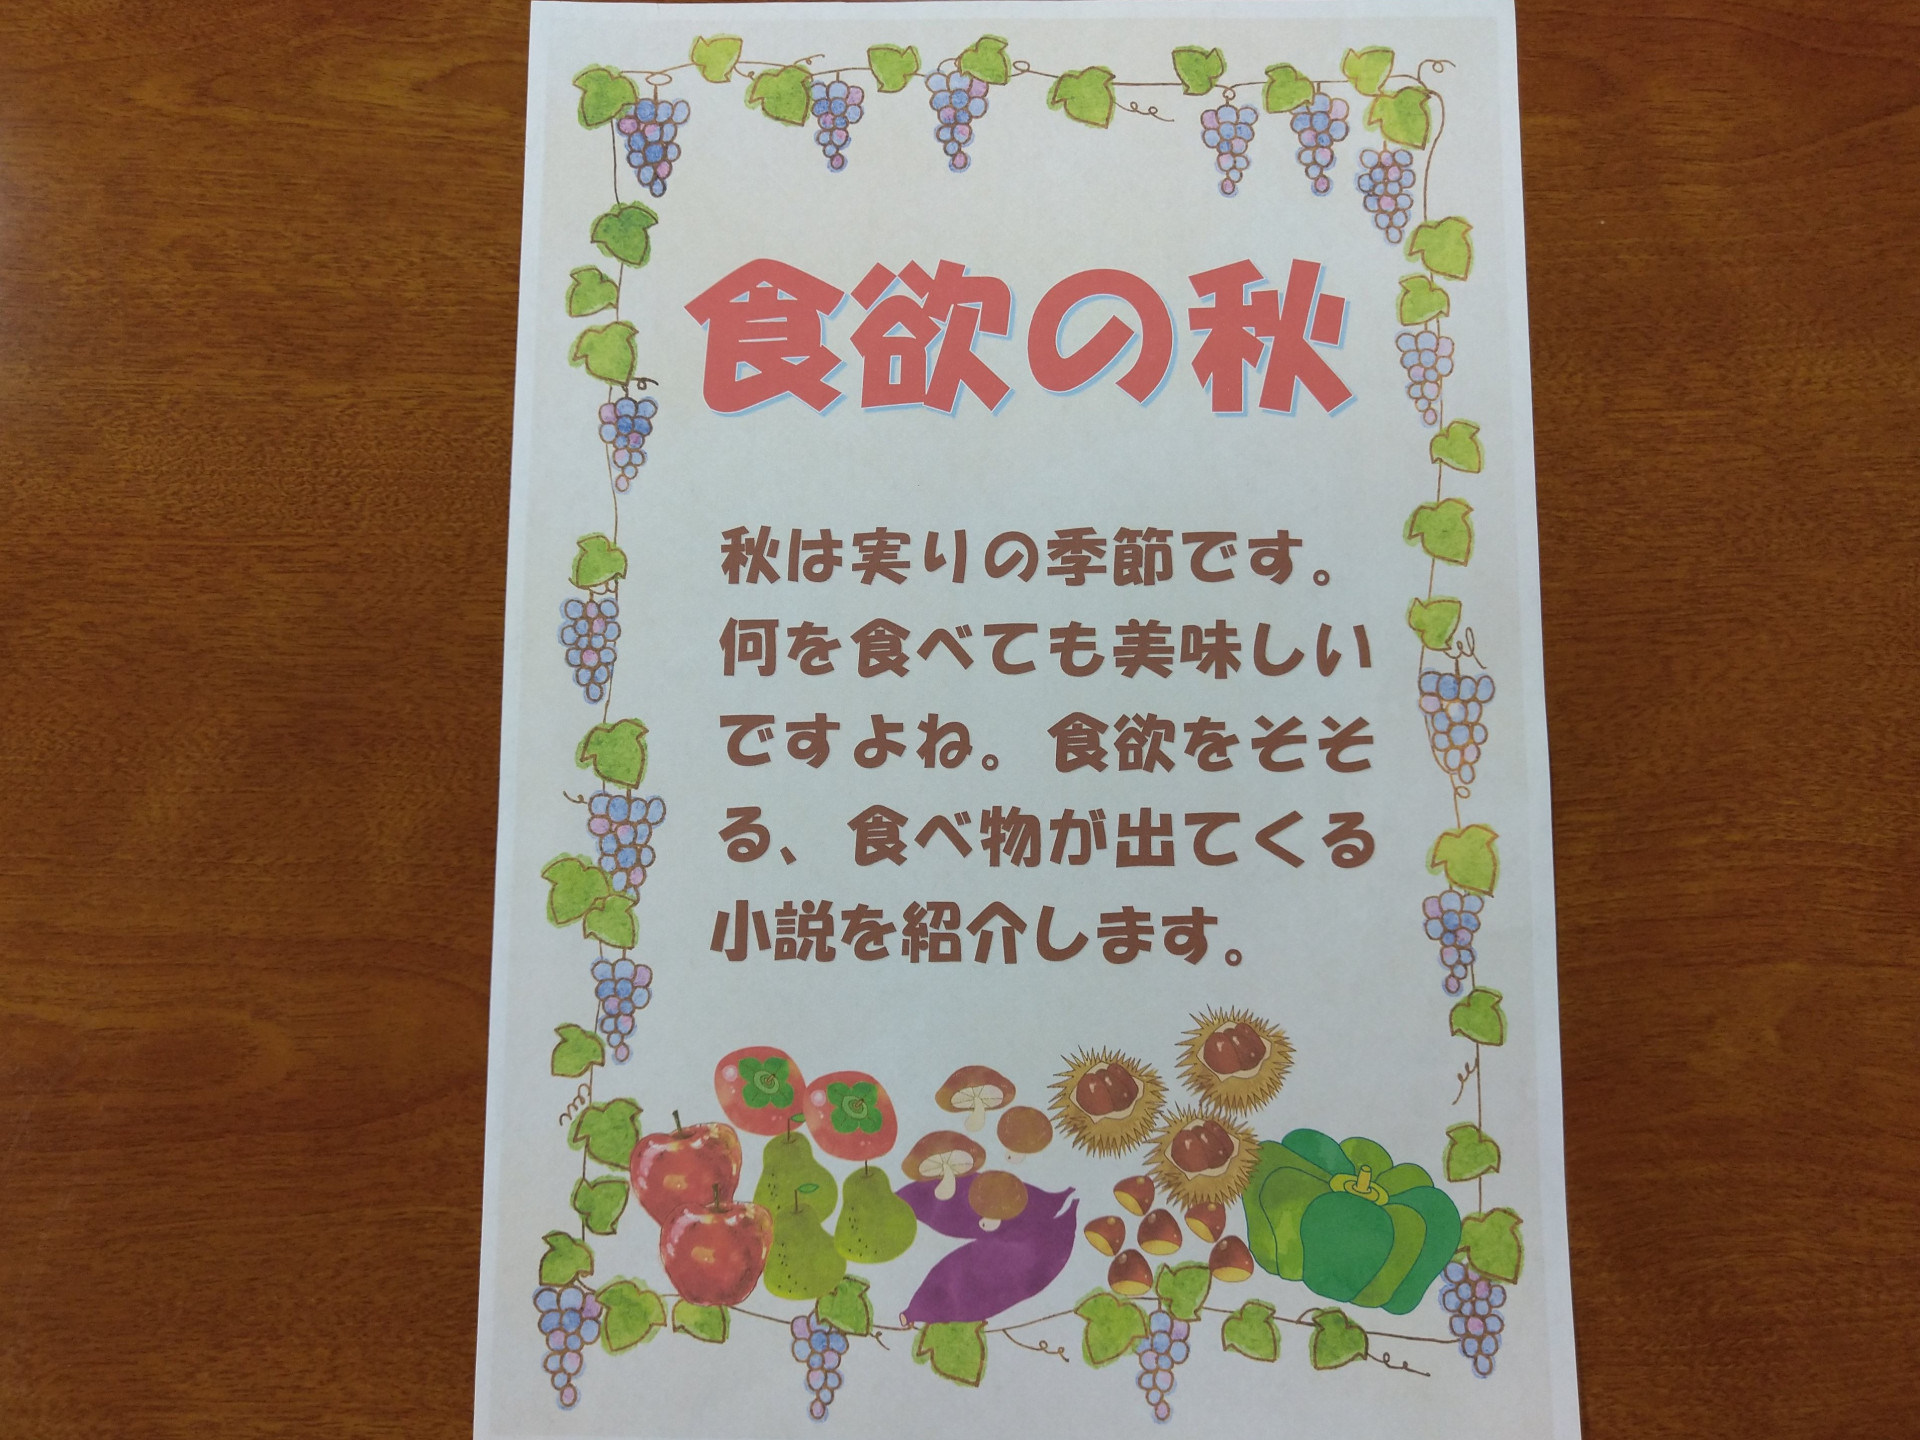 食欲の秋
秋は実りの季節です。
何を食べても美味しい
ですよね。食欲をそそ
る、食べ物が出てくる
小説を紹介します。